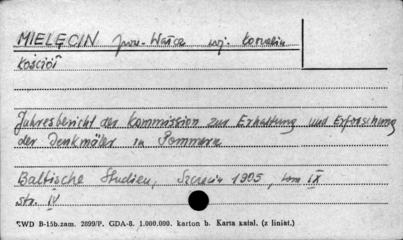 MIELĘCIN pow. Wałcz woj. Koszalin
Kościół
Jahresbericht der Kommission zur Erhaltung und Erforschung
der Denkmäler in Pommern
Baltische Studien, Szczecin 1905, tom IX
str. IV
WD B-15b.zam. 2899/P. GDA-8. 1.000.000. karton b. Karta katal. (z liniat.)